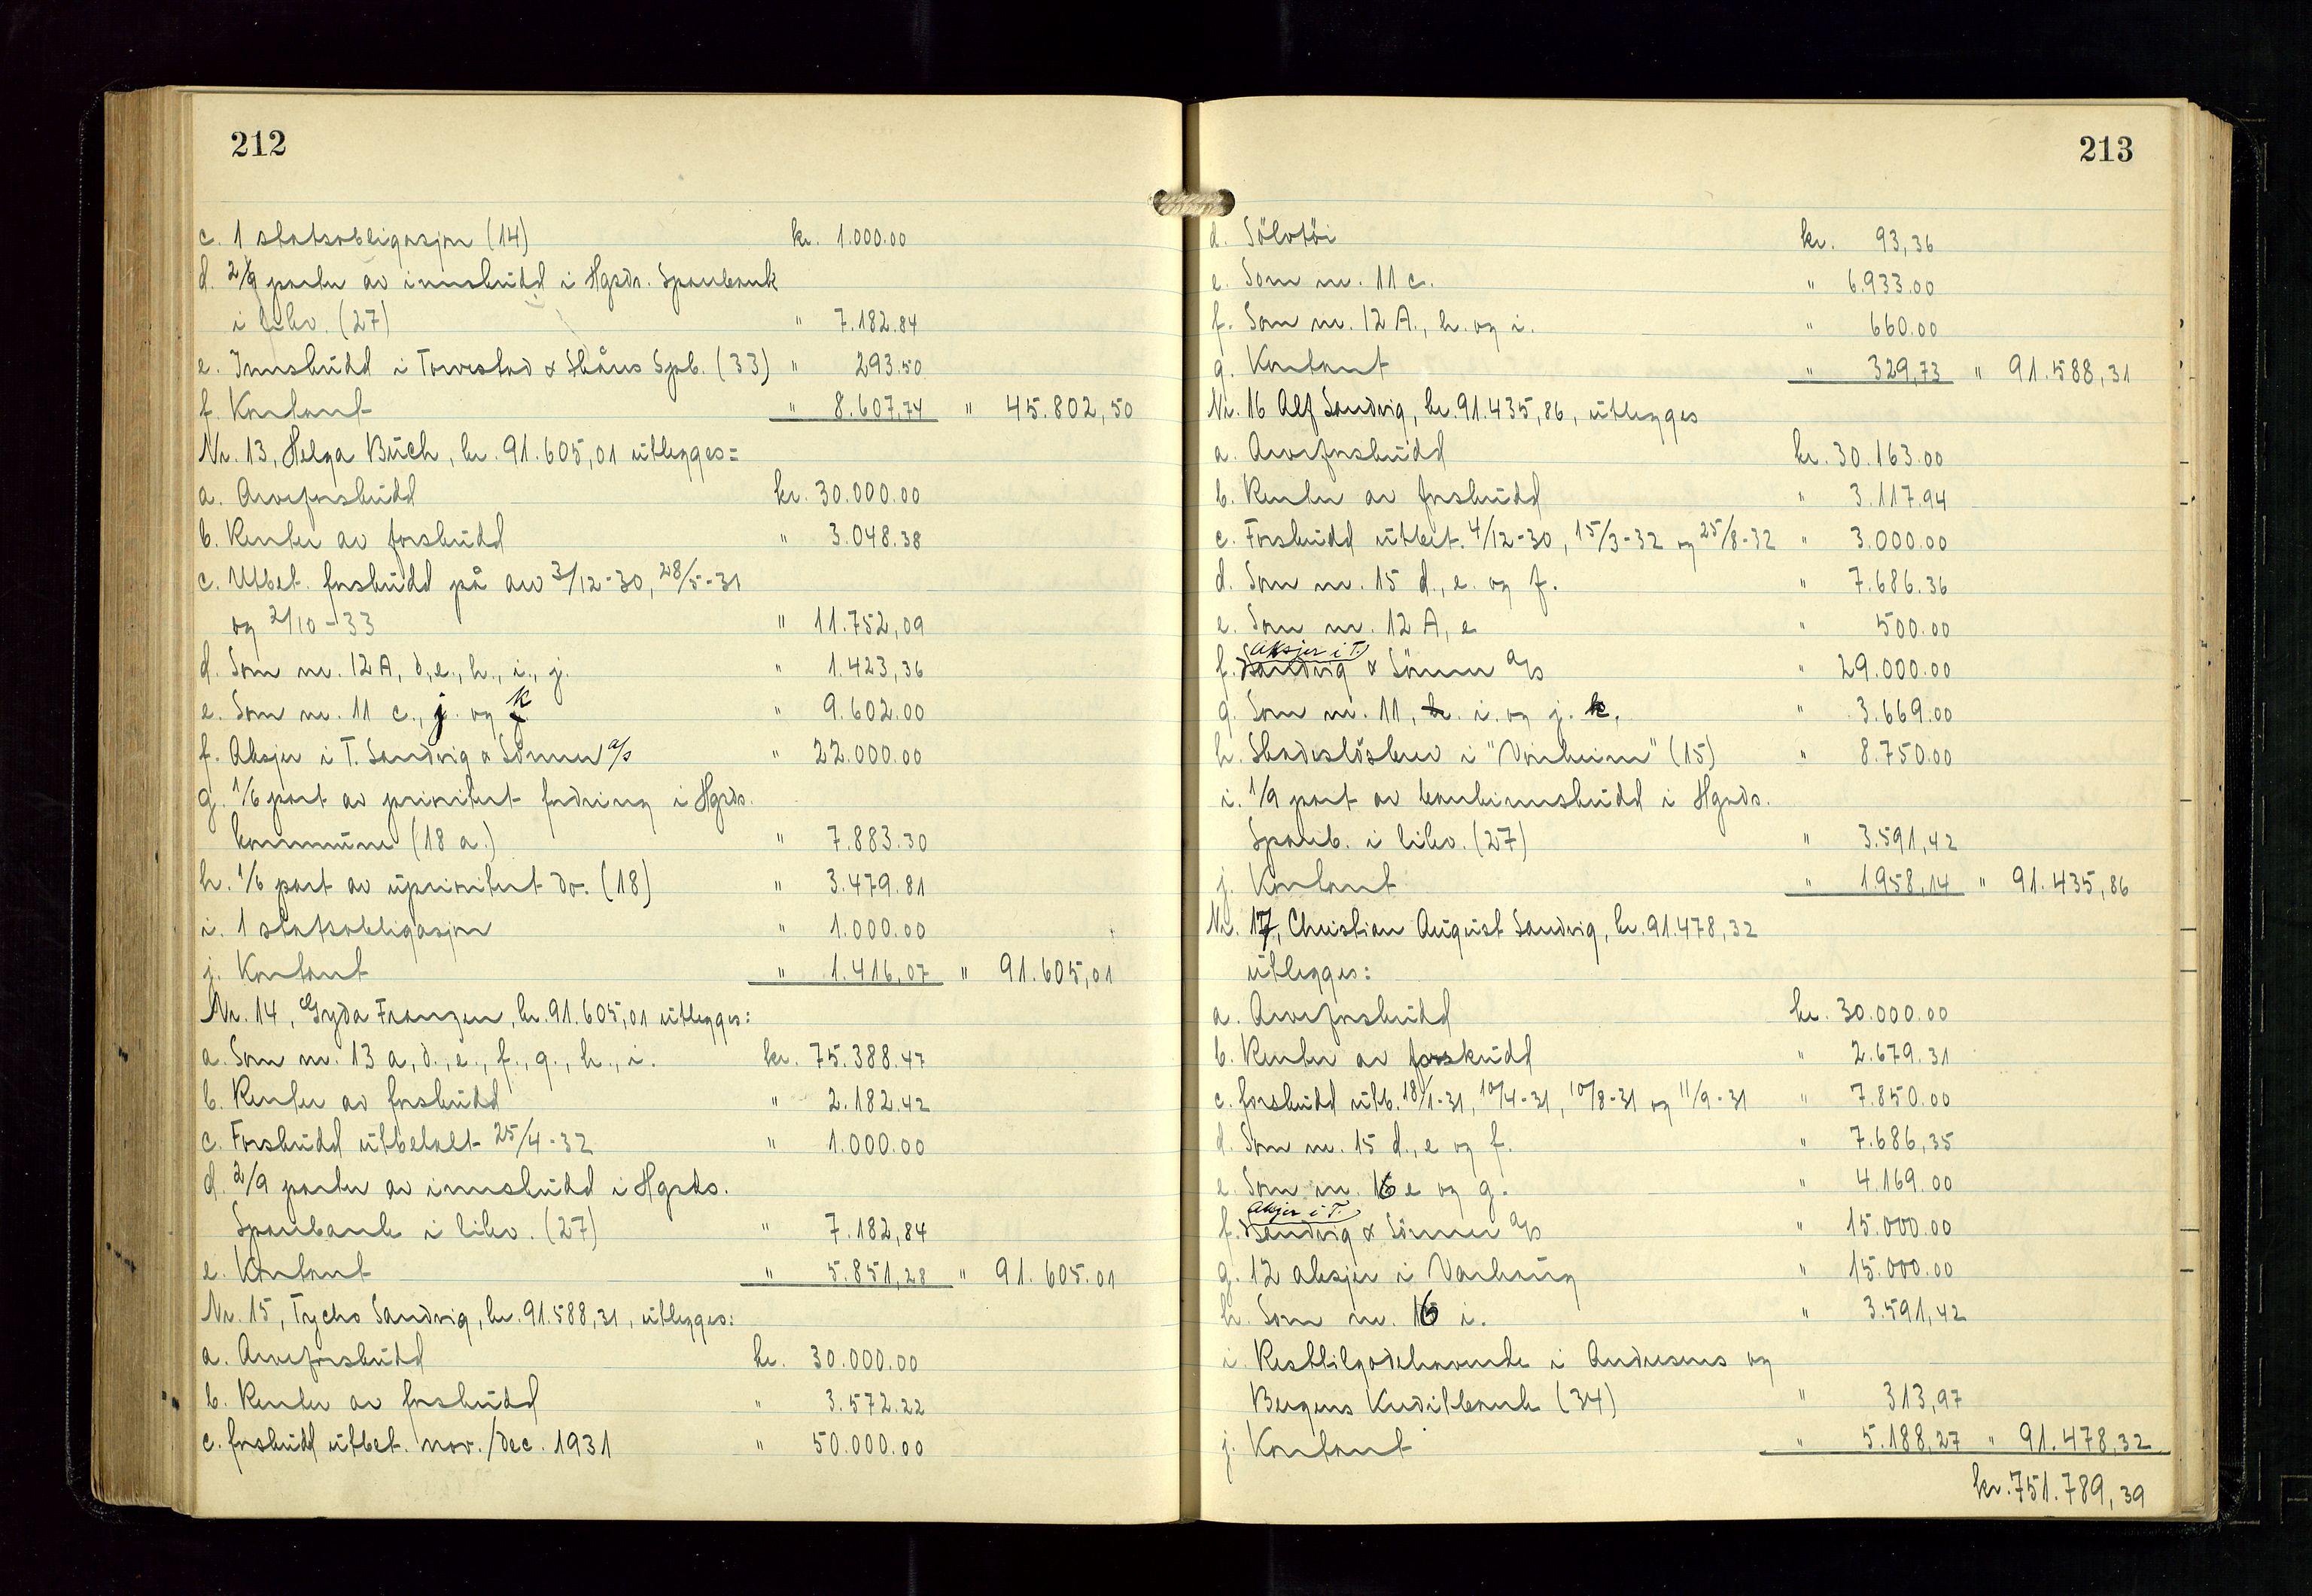 212
c. 1 statsobligasjon (14) kr. 1.000.00
d. 2/9 parter av innskudd i Hgsds. Sparebank
i likv. (27) " 7.182.84
e. Innskudd i Torvestad & Skåres Spb. (33) " 293.50
f. Kontant " 8.607,74 " 45.802,50
Nr. 13, Helga Buch, kr. 91.605,01 utlegges=
a. Arveforskudd kr. 30.000.00
b. Renter av forskudd " 3.048.38
c. Utbet. forskudd på arv 3/12-30, 28/5-31
og 2/10-33 " 11.752,09
d. Som nr. 12 A, d, e., h., i., j. " 1.423,36
e. Som nr. 11 c., j. og k " 9.602.00
f. Aksjer i T. Sandvig & Sönner a/s " 22.000.00
g. 1/6 part av prioritert fordring i Hgsds.
kommune (18 a.) " 7.883.30
h. 1/6 part av uprioritert do. (18) " 3.479.81
i. 1 statsobligasjon " 1.000.00
j. Kontant " 1.416,07 " 91.605,01
Nr. 14, Gyda Franzen, kr. 91.605,01 utlegges:
a. Som nr. 13 a, d., e., f., g., h., i. kr. 75.388.47
b. Renter av forskudd " 2.182.42
c. Forskudd utbetalt 25/4-32 " 1.000.00
d. 2/9 parter av innskudd i Hgsds.
Sparebank i likv. (27) " 7.182,84
e. Kontant " 5.851,28 " 91.605.01
Nr. 15, Tycho Sandvig, kr. 91.588,31, utlegges:
a. Arveforskudd kr. 30.000.00
b. Renter av forskudd " 3.572.22
c. forskudd utbet. nov./dec. 1931 " 50.000.00
213
d. Sölvtöi kr. 93,36
e. Som nr. 11 c. " 6.933.00
f. Som nr. 12 A., h. og i. " 660.00
g. Kontant " 329,73 " 91.588,31
Nr. 16 Alf Sandvig, kr. 91.435,86, utlegges
a. Arveforskudd kr. 30.163.00
b. Renter av forskudd " 3.117.94
c. Forskudd utbet. 4/12-30, 15/3-32 og 25/8-32 " 3.000.00
d. Som nr. 15 d., e. og f. " 7.686.36
e. Som nr. 12 A, e " 500.00
Aksjer i T.
f. Sandvig & Sönner a/s " 29.000.00
g. Som nr. 11, h. i. og j. k. " 3.669.00
h. Skadeslösbrev i "Vonheim" (15) " 8.750.00
i. 1/9 part av bankinnskudd i Hgsds.
Spareb. i likv. (27) " 3.591,42
j. Kontant " 1.958,14 " 91.435,86
Nr. 17, Christian August Sandvig, kr. 91.478,32
utlegges:
a. Arveforskudd kr. 30.000.00
b. Renter av forskudd " 2.679.31
c. forskudd utb. 18/1-31, 10/4-31, 10/8-31 og 11/9-31 " 7.850.00
d. Som nr. 15 d., e og f. " 7.686,35
e. Som nr. 16 e og g. " 4.169.00
Aksjer i T.
f. Sandvig & Sönner a/s " 15.000.00
g. 12 aksjer i Varbaug " 15.000.00
h. Som nr. 16 i. " 3.591,42
i. Resttilgodehavende i Andresens og
Bergens Kreditbank (34) " 313,97
j. Kontant " 5.188,27 " 91.478,32
kr. 751.789,39